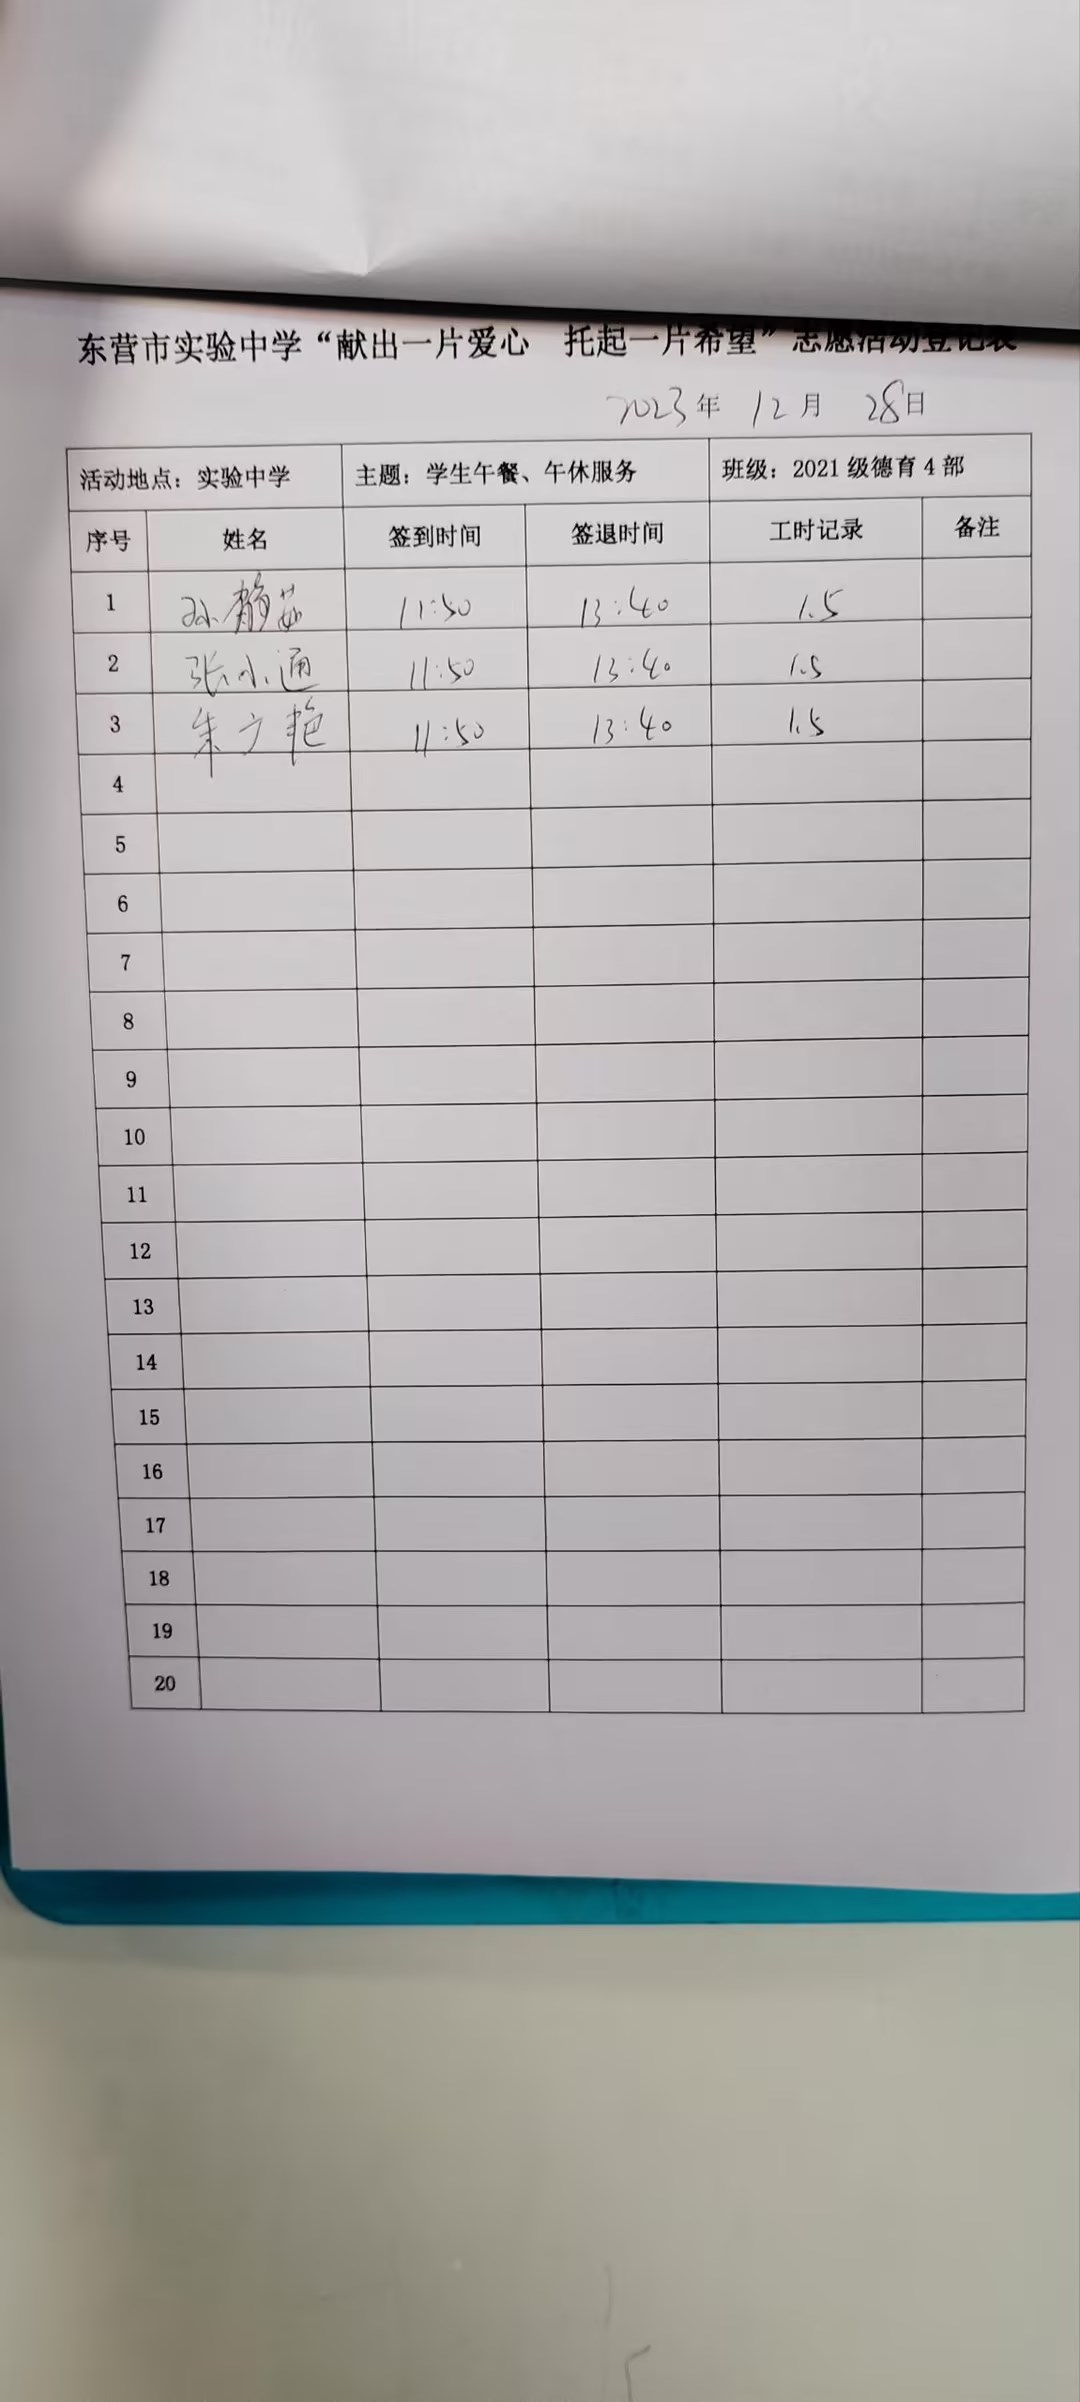 东营市实验中学“献出一片爱心 托起一片希望”志愿活动登记表
2023年 12月 28日
活动地点：实验中学 主题：学生午餐、午休服务 班级：2021级德育4部
序号 姓名 签到时间 签退时间 工时记录 备注
1 孙静茹 11:50 13:40 1.5
2 张小通 11:50 13:40 1.5
3 朱立艳 11:50 13:40 1.5
4
5
6
7
8
9
10
11
12
13
14
15
16
17
18
19
20